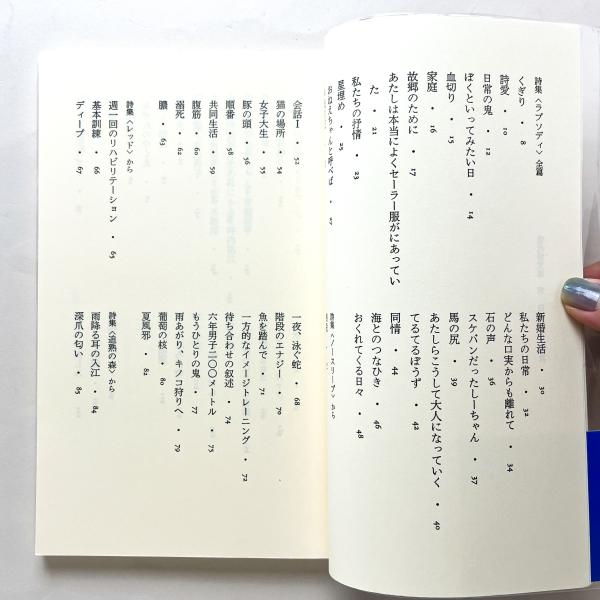 詩集〈ラプソディ〉全篇
くぎり・8
詩愛・10
日常の鬼・12
ぼくといってみたい日・14
血切り・15
家庭・16
故郷のために・17
あたしは本当によくセーラー服がにあってい
た・21
私たちの抒情・23
星埋め・25
おねえちゃんと呼べば・27
新婚生活・30
私たちの日常・32
どんな口実からも離れて・34
石の声・36
スケバンだったしーちゃん・37
馬の尻・39
あたしらこうして大人になっていく・40
てるてるぼうず・42
同情・44
海とのつなひき・46
おくれてくる日々・48
詩集〈ノースリーブ〉から
会話Ⅰ・52
猫の場所・54
女子大生・55
豚の頭・56
順番・58
共同生活・59
腹筋・60
溺死・62
膿・63
詩集〈レッド〉から
週一回のリハビリテーション・65
基本訓練・66
ディープ・67
一夜、泳ぐ蛇・68
階段のエナジー・70
魚を踏んで・71
一方的なイメージトレーニング・72
待ち合わせの叙述・74
六年男子二〇〇メートル・75
もうひとりの鬼・77
雨あがり、キノコ狩りへ・79
葡萄の核・80
夏風邪・82
詩集〈追熟の森〉から
雨降る耳の入江・84
深爪の匂い・85